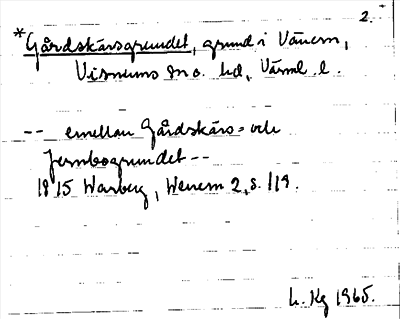 2.
*Gårdskärsgrundet, grund i Vänern,
Visnums sn o. hd, Värml. l.
-- emellan Gårdskärs- och
Jernbogrundet --
1815 Warberg, Wenern 2, s. 119.
L. Kg 1965.